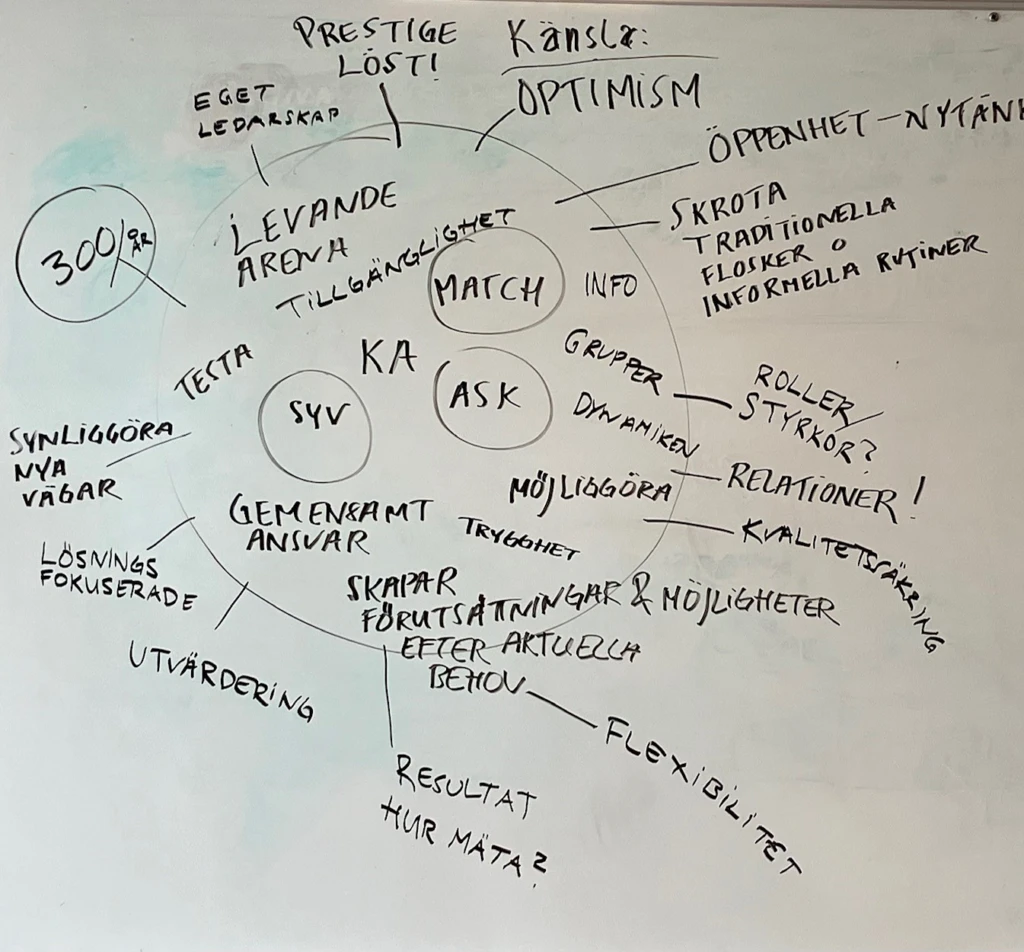 PRESTIGE
LÖST!
Känsla:
OPTIMISM
EGET
LEDARSKAP
ÖPPENHET - NYTÄNK
300/ÅR
LEVANDE
ARENA
TILLGÄNGLIGHET
MATCH
INFO
SKROTA
TRADITIONELLA
FLOSKER O
INFORMELLA RUTINER
TESTA
KA
SYV
ASK
GRUPPER
DYNAMIKEN
ROLLER/
STYRKOR?
RELATIONER!
SYNLIGGÖRA
NYA
VÄGAR
MÖJLIGGÖRA
KVALITETSSÄKRING
GEMENSAMT
ANSVAR
TRYGGHET
LÖSNINGS
FOKUSERADE
SKAPAR
FÖRUTSÄTNINGAR & MÖJLIGHETER
EFTER AKTUELLA
BEHOV
UTVÄRDERING
FLEXIBILITET
RESULTAT
HUR MÄTA?